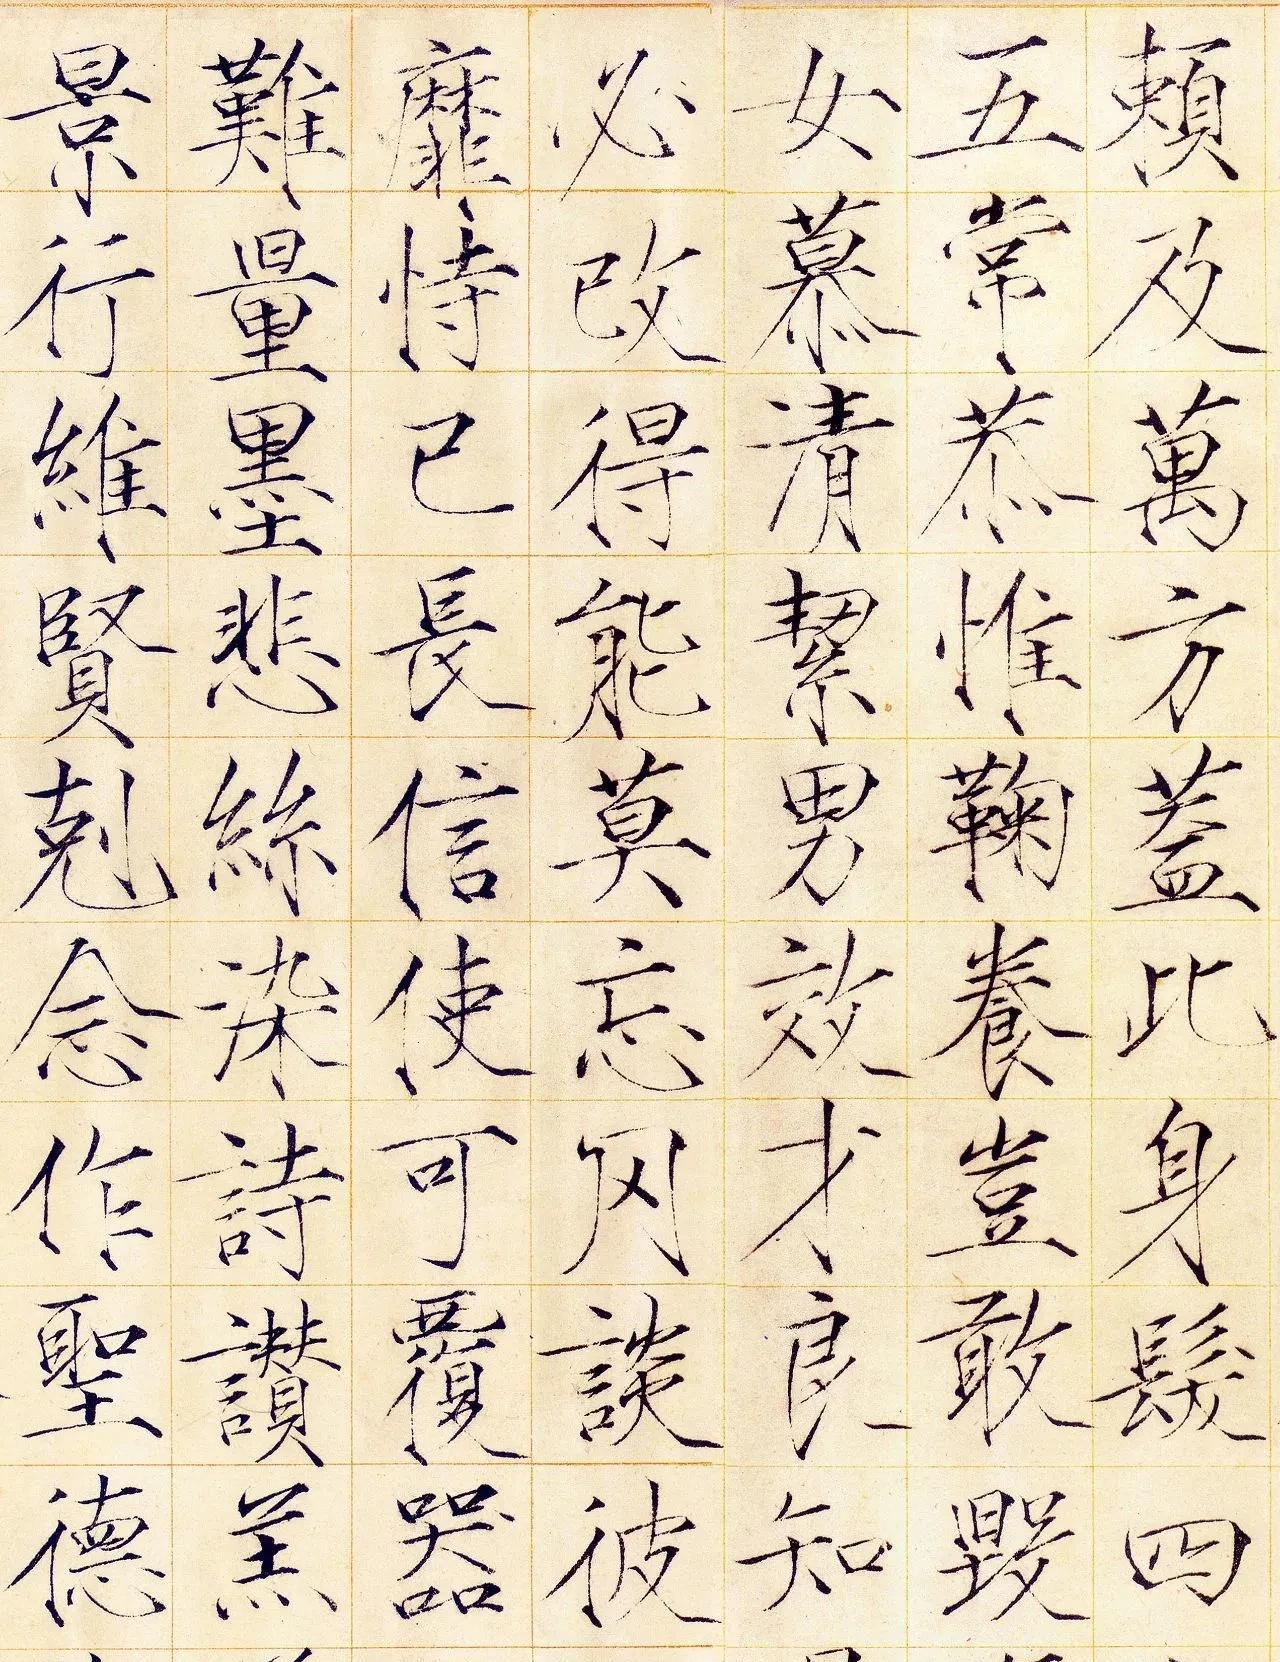 賴及萬方蓋此身髮四
五常恭惟鞠養豈敢毀
女慕清絜男效才良知
必改得能莫忘罔談彼
靡恃己長信使可覆器
難量墨悲絲染詩讃羔
景行維賢剋念作聖德